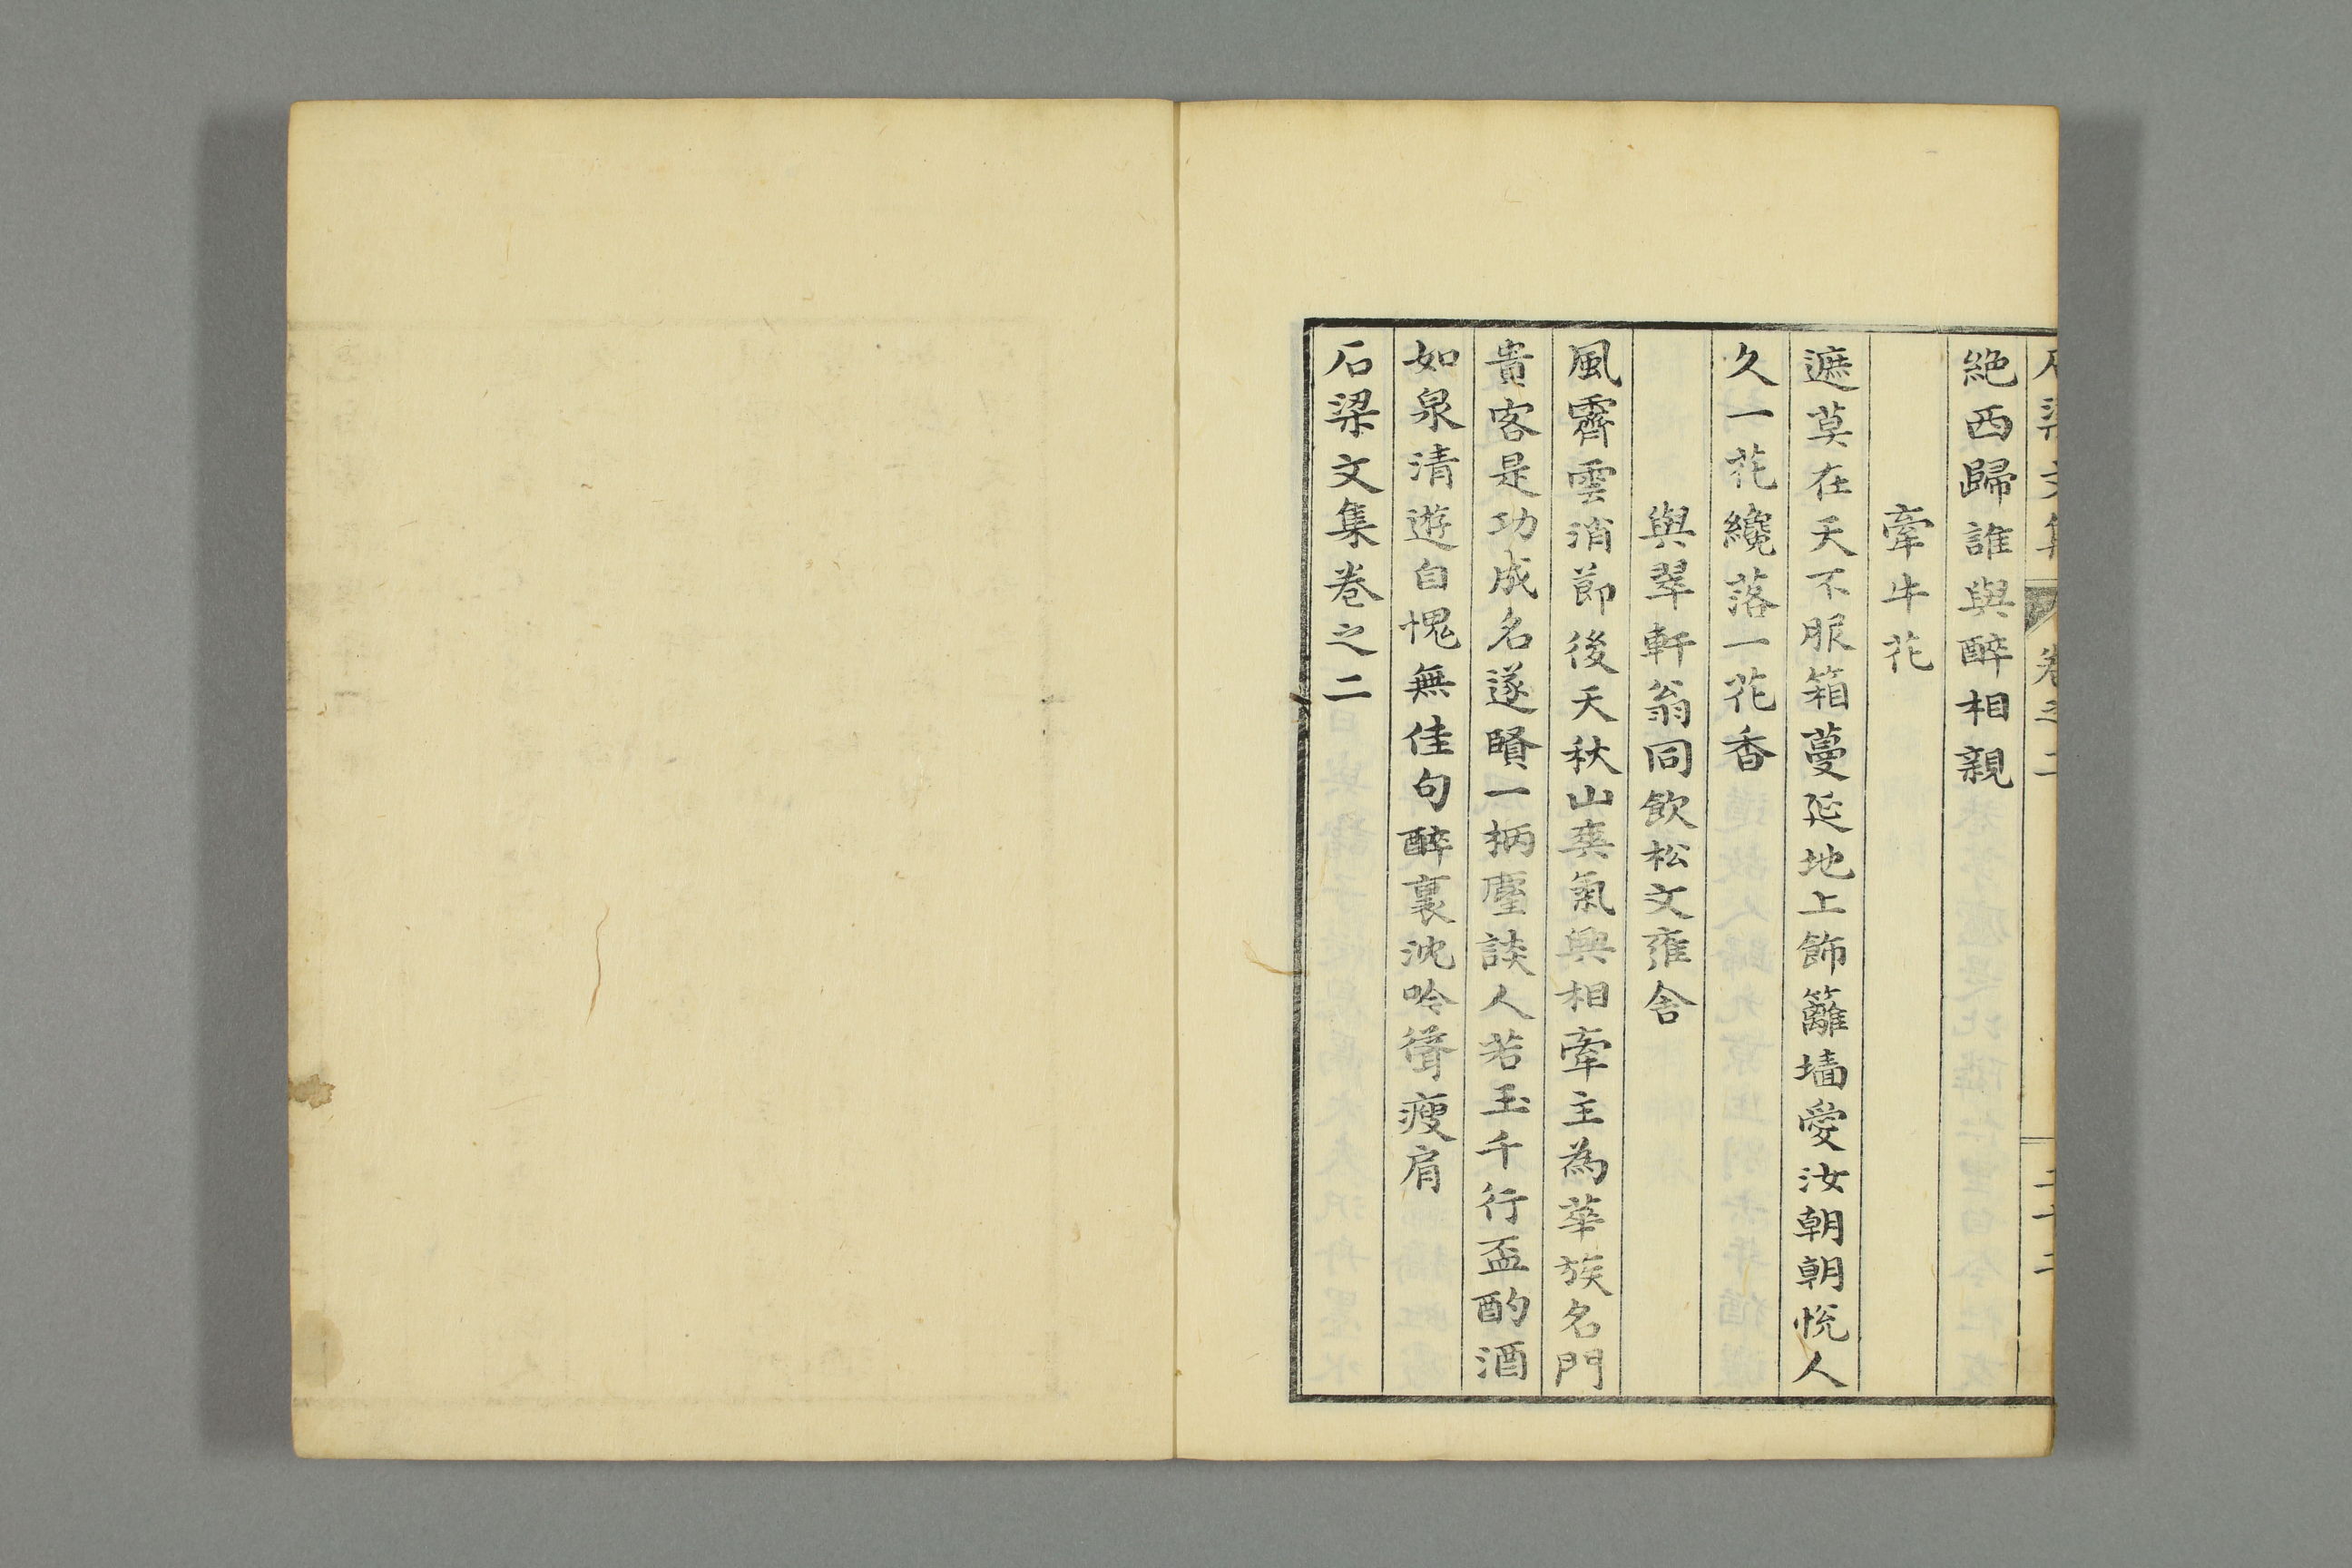 絶西歸誰與醉相親
牽牛花
遮莫在天不服箱蔓延地上飾籬墻愛汝朝朝悅人
久一花纔落一花香
與翠軒翁同飮松文雍舍
風霽雲消節後天秋山爽氣興相牽主為華族名門
貴客是功成名遂賢一柄麈談人若玉千行盃酌酒
如泉清遊自愧無佳句醉裏沈吟聳瘦肩
石梁文集卷之二